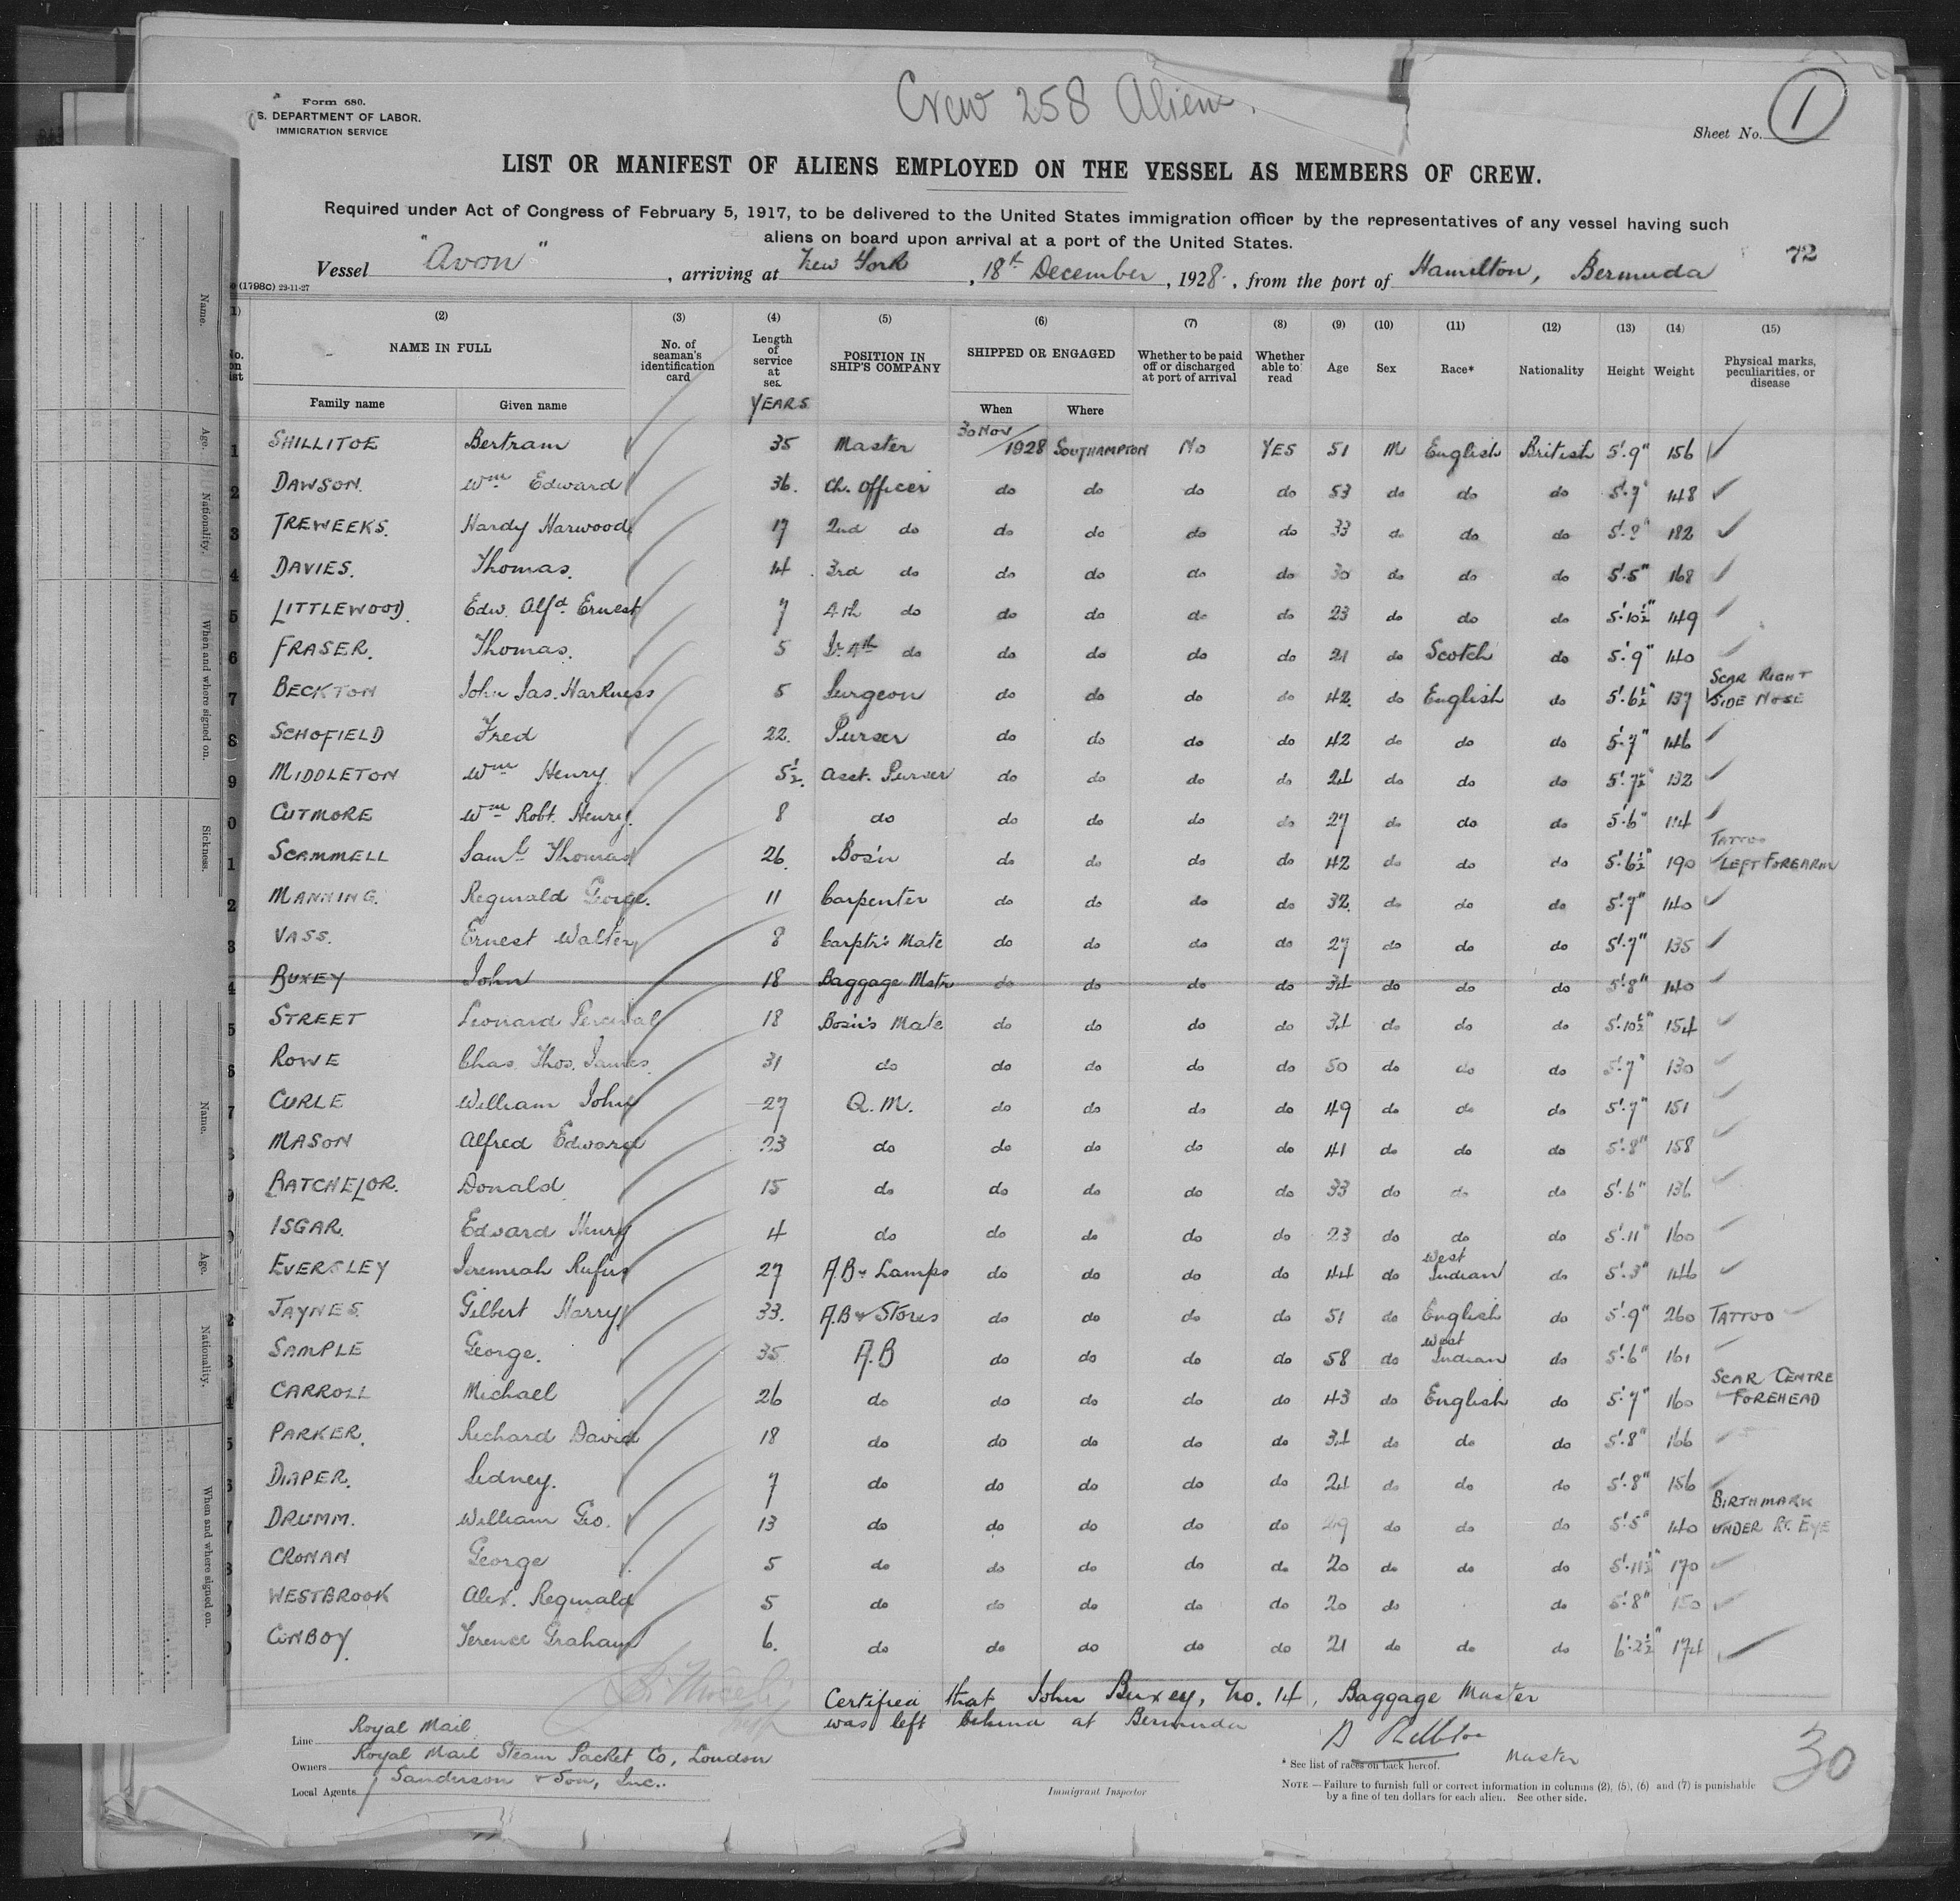 Crew 258 Aliens.
Form 680.
S. DEPARTMENT OF LABOR.
IMMIGRATION SERVICE
Sheet No. 1
LIST OR MANIFEST OF ALIENS EMPLOYED ON THE VESSEL AS MEMBERS OF CREW.
Required under Act of Congress of February 5, 1917, to be delivered to the United States immigration officer by the representatives of any vessel having such
aliens on board upon arrival at a port of the United States.
72
Vessel "Avon", arriving at New York, 18th December, 1928, from the port of Hamilton, Bermuda
(1798c) 29-11-27
(2) (3) (4) (5) (6) (7) (8) (9) (10) (11) (12) (13) (14) (15)
NAME IN FULL No. of seaman's identification card Length of service at sea POSITION IN SHIP'S COMPANY SHIPPED OR ENGAGED Whether to be paid off or discharged at port of arrival Whether able to read Age Sex Race* Nationality Height Weight Physical marks, peculiarities, or disease
Family name Given name YEARS When Where
1 SHILLITOE Bertram 35 Master 30 Nov/1928 SOUTHAMPTON No YES 51 M English British 5'.9" 156
2 DAWSON. Wm Edward 36. Ch. Officer do do do do 53 do do do 5'.7" 148
3 TREWEEKS. Hardy Harwood 17 2nd do do do do do 33 do do do 182
4 DAVIES. Thomas. 14 3rd do do do do do 30 do do do 5'.5" 168
5 LITTLEWOOD. Edw. Alfd. Ernest 7 4th do do do do do 23 do do do 5'.10½" 149
6 FRASER. Thomas. 5 4th do do do do do 21 do Scotch do 5'.9" 140
7 BECKTON John Jas. Harkness 5 Surgeon do do do do 42. do English do 5'.6½" 137 SCAR RIGHT SIDE NOSE
8 SCHOFIELD Fred 22. Purser do do do do 42 do do do 5'.7" 146
9 MIDDLETON Wm Henry 5½. Asst. Purser do do do do 24 do do do 5'.7½" 132
0 CUTMORE Wm Robt. Henry. 8 do do do do do 27 do do do 5'.6" 114
1 SCAMMELL Saml Thomas 26. Bos'n do do do do 42 do do do 5'.6½" 190 TATTOO LEFT FOREARM
2 MANNING. Reginald George. 11 Carpenter do do do do 32. do do do 5'.7" 140
3 VASS. Ernest Walter 8 Carptr's Mate do do do do 27 do do do 5'.7" 135
4 BUXEY John 18 Baggage Mstr do do do do 34 do do do 5'.8" 140
5 STREET Leonard Percival 18 Bosn's Mate do do do do 34 do do do 5'.10½" 154
6 ROWE Chas. Thos. James. 31 do do do do do 50 do do do 5'.7" 130
7 CURLE William John 27 Q.M. do do do do 49 do do do 5'.7" 151
8 MASON Alfred Edward 23 do do do do do 41 do do do 5'.8" 158
9 BATCHELOR. Donald 15 do do do do do 33 do do do 5'.6" 136
0 ISGAR. Edward Henry 4 do do do do do 23 do do do 5'.11" 160
EVERSLEY Jeremiah Rufus 27 A.B & Lamps do do do do 44 do West Indian do 5'.3" 146
2 JAYNES. Gilbert Harry 33. A.B & Stores do do do do 51 do English do 5'.9" 260 TATTOO
3 SAMPLE George. 35 A.B do do do do 58 do West Indian do 5'.6" 161
4 CARROLL Michael 26 do do do do do 43 do English do 5'.7" 160 SCAR CENTRE FOREHEAD
5 PARKER. Richard David 18 do do do do do 34 do do do 5'.8" 166
DIAPER. Sidney. 7 do do do do do 24 do do do 5'.8" 156
7 DRUMM. William Geo. 13 do do do do do 29 do do do 5'.5" 140 BIRTHMARK UNDER RT. EYE
CRONAN George 5 do do do do do 20 do do do 5'.11½" 170
WESTBROOK Alex. Reginald 5 do do do do do 20 do do 5'.8" 150
CONBOY. Terence Graham 6. do do do do do 21 do do do 6'.2½" 174
Certified that John Buxey, No. 14, Baggage Master
was left behind at Bermuda
Master
Line Royal Mail
Owners Royal Mail Steam Packet Co, London
Local Agents Sanderson & Son, Inc.
Immigrant Inspector
* See list of races on back hereof.
NOTE.—Failure to furnish full or correct information in columns (2), (5), (6) and (7) is punishable
by a fine of ten dollars for each alien. See other side.
30
Name.
Age.
Nationality.
When and where signed on.
Sickness.
Name.
Age.
Nationality.
When and where signed on.